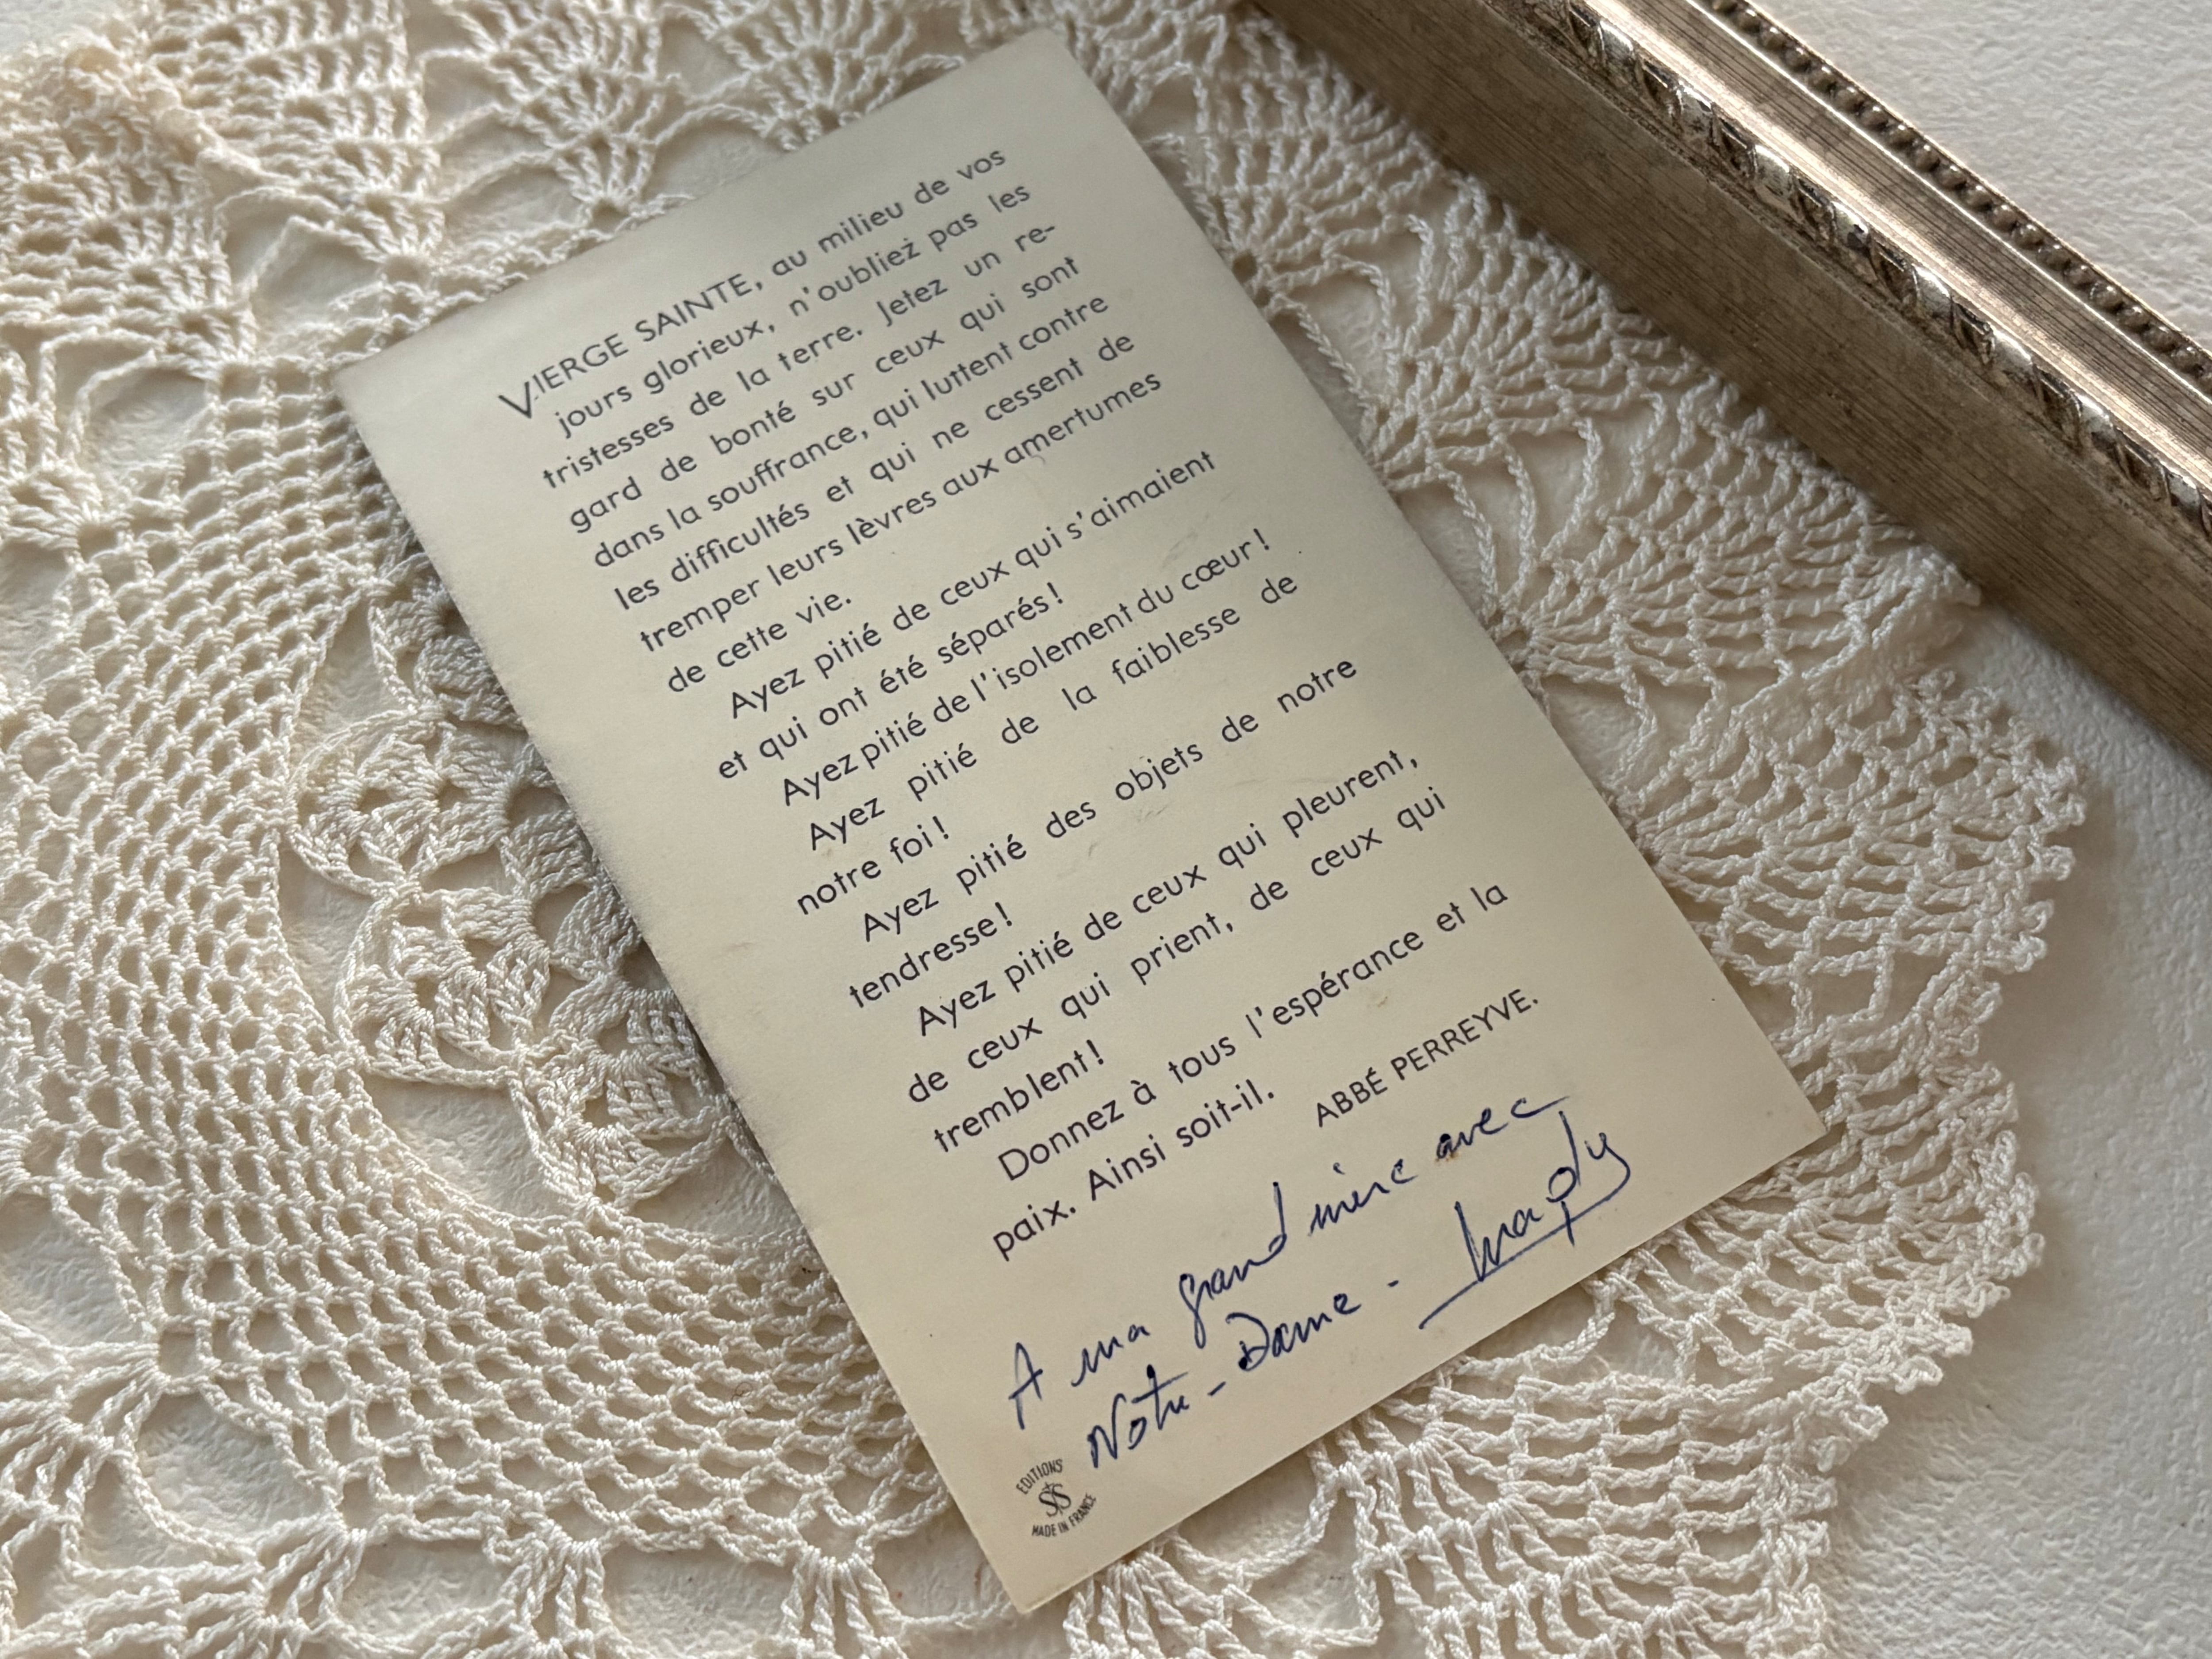 VIERGE SAINTE, au milieu de vos
jours glorieux, n'oubliez pas les
tristesses de la terre. Jetez un re-
gard de bonté sur ceux qui sont
dans la souffrance, qui luttent contre
les difficultés et qui ne cessent de
tremper leurs lèvres aux amertumes
de cette vie.
Ayez pitié de ceux qui s'aimaient
et qui ont été séparés!
Ayez pitié de l'isolement du cœur!
Ayez pitié de la faiblesse de
notre foi!
Ayez pitié des objets de notre
tendresse!
Ayez pitié de ceux qui pleurent,
de ceux qui prient, de ceux qui
tremblent!
Donnez à tous l'espérance et la
paix. Ainsi soit-il.
ABBÉ PERREYVE.
A ma grand mère avec
Notre-Dame -
EDITIONS
SS
MADE IN FRANCE